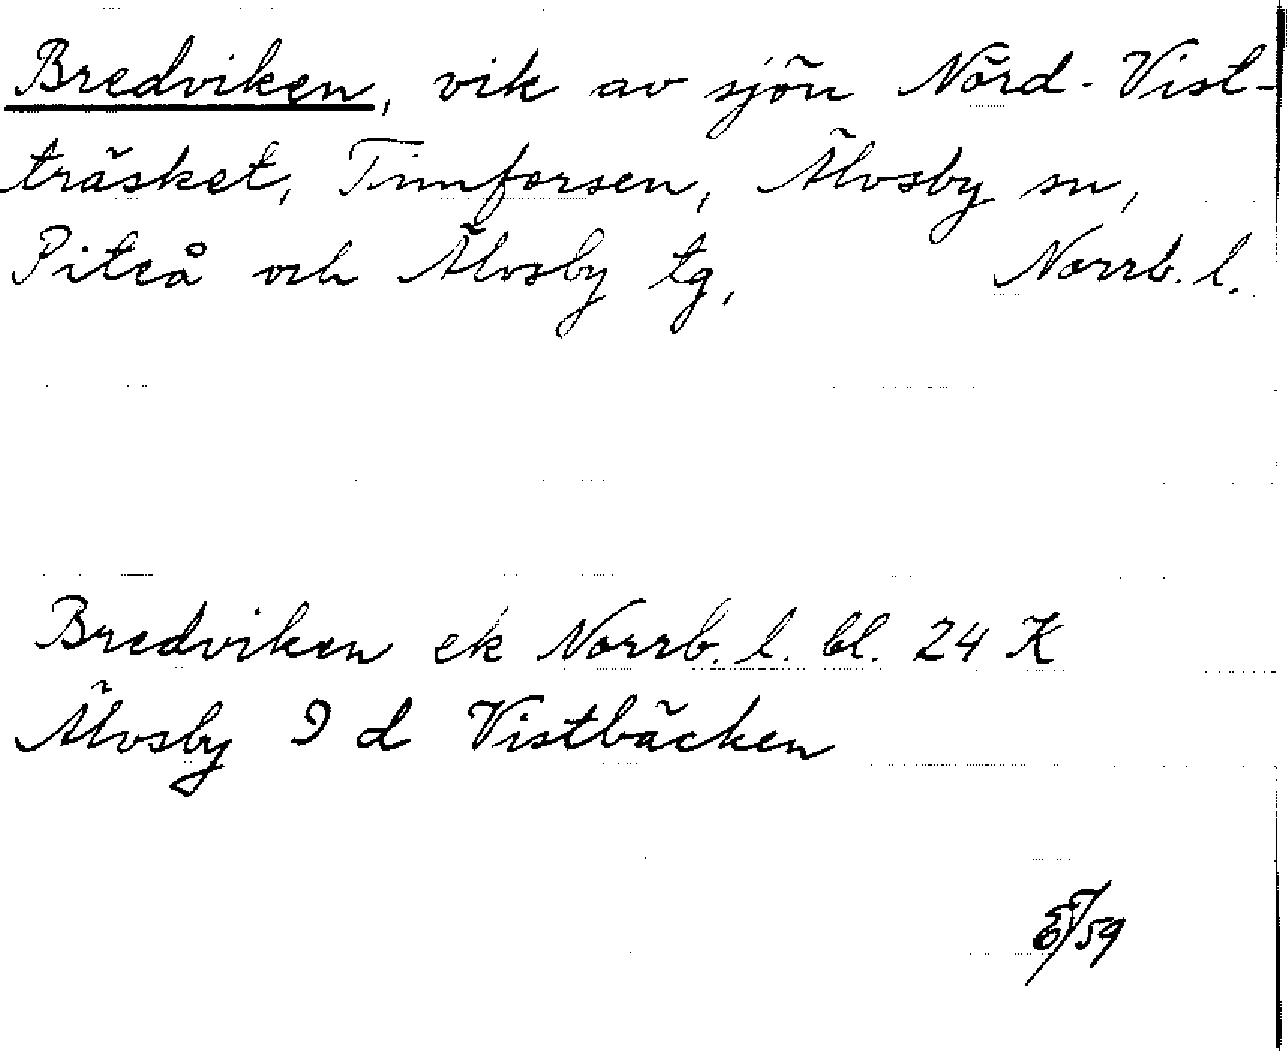 Bredviken, vik av sjön Nörd-Vist-
träsket, Timforsen, Älvsby sn,
Piteå och Älvsby tg, Norrb. l.
Bredviken ek Norrb. l. bl. 24 K
Älvsby 9 d Vistbäcken